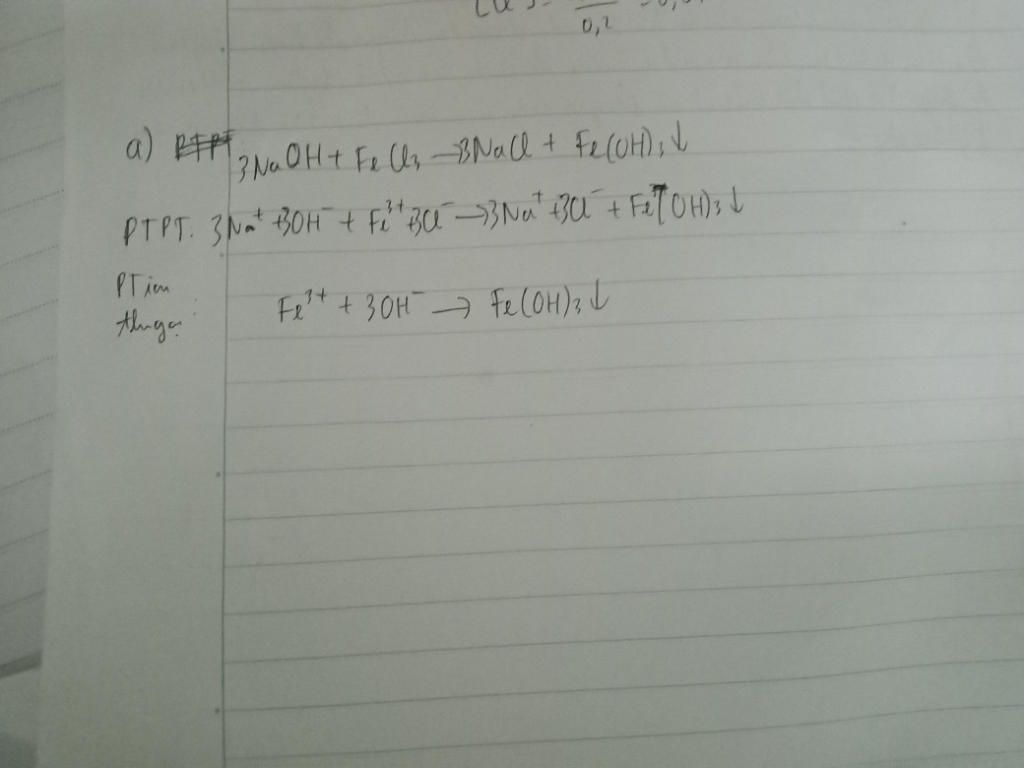 0,2
a) 3NaOH + FeCl₃ → 3NaCl + Fe(OH)₃↓
PTPT: 3Na⁺ + 3OH⁻ + Fe³⁺ + 3Cl⁻ → 3Na⁺ + 3Cl⁻ + Fe(OH)₃↓
PT ion
Fe³⁺ + 3OH⁻ → Fe(OH)₃↓